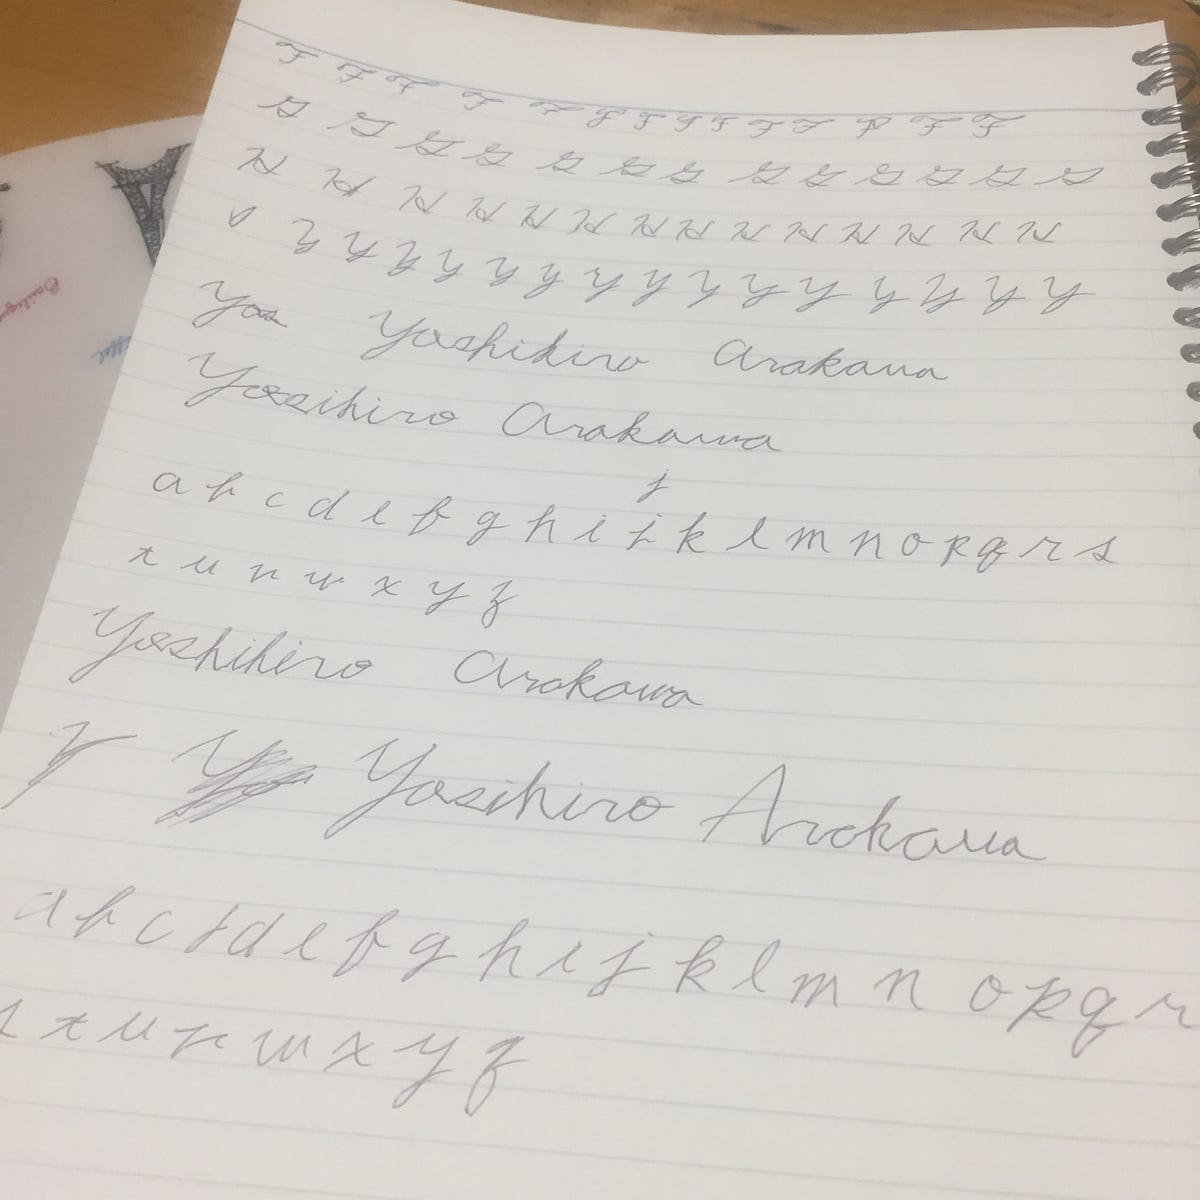 F F F F F F F F F F F P F F
G G G G G G G G G G G G G
H H H H H H H H H H H H H H
Y Y Y Y Y Y Y Y Y Y Y Y Y Y Y
Yos Yoshihiro Arakawa
Yosihiro Arakawa
j
a b c d e f g h i j k l m n o p q r s
t u v w x y z
Yoshihiro Arakawa
Y Yo Yosihiro Arakawa
a b c d d e f g h i j k l m n o p q r
s t u v w x y z